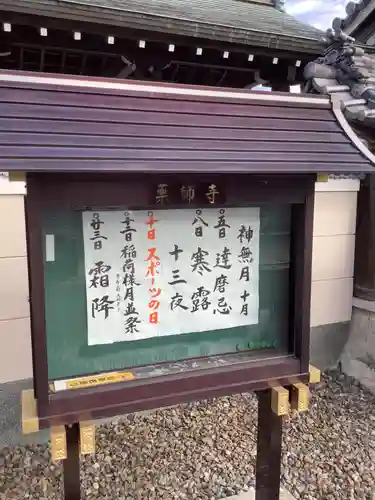 薬師寺
神無月 十月
五日 達磨忌
八日 寒露
十三夜
十日 スポーツの日
稲荷様月並祭
廿三日 霜降